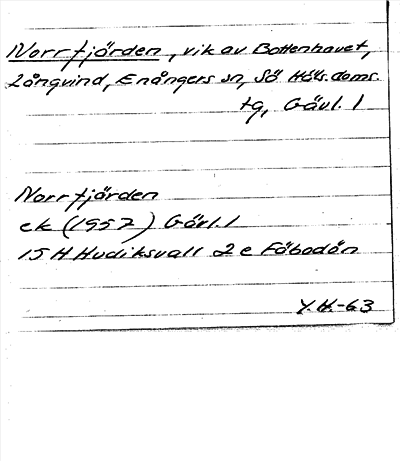 Norrfjärden, vik av Bottenhavet,
Långvind, Enångers sn, Sö Häls. doms.
tg, Gävl. l
Norrfjärden
ek (1957) Gävl. l
15 H Hudiksvall 2 e Fäbodån
Y.H.-63